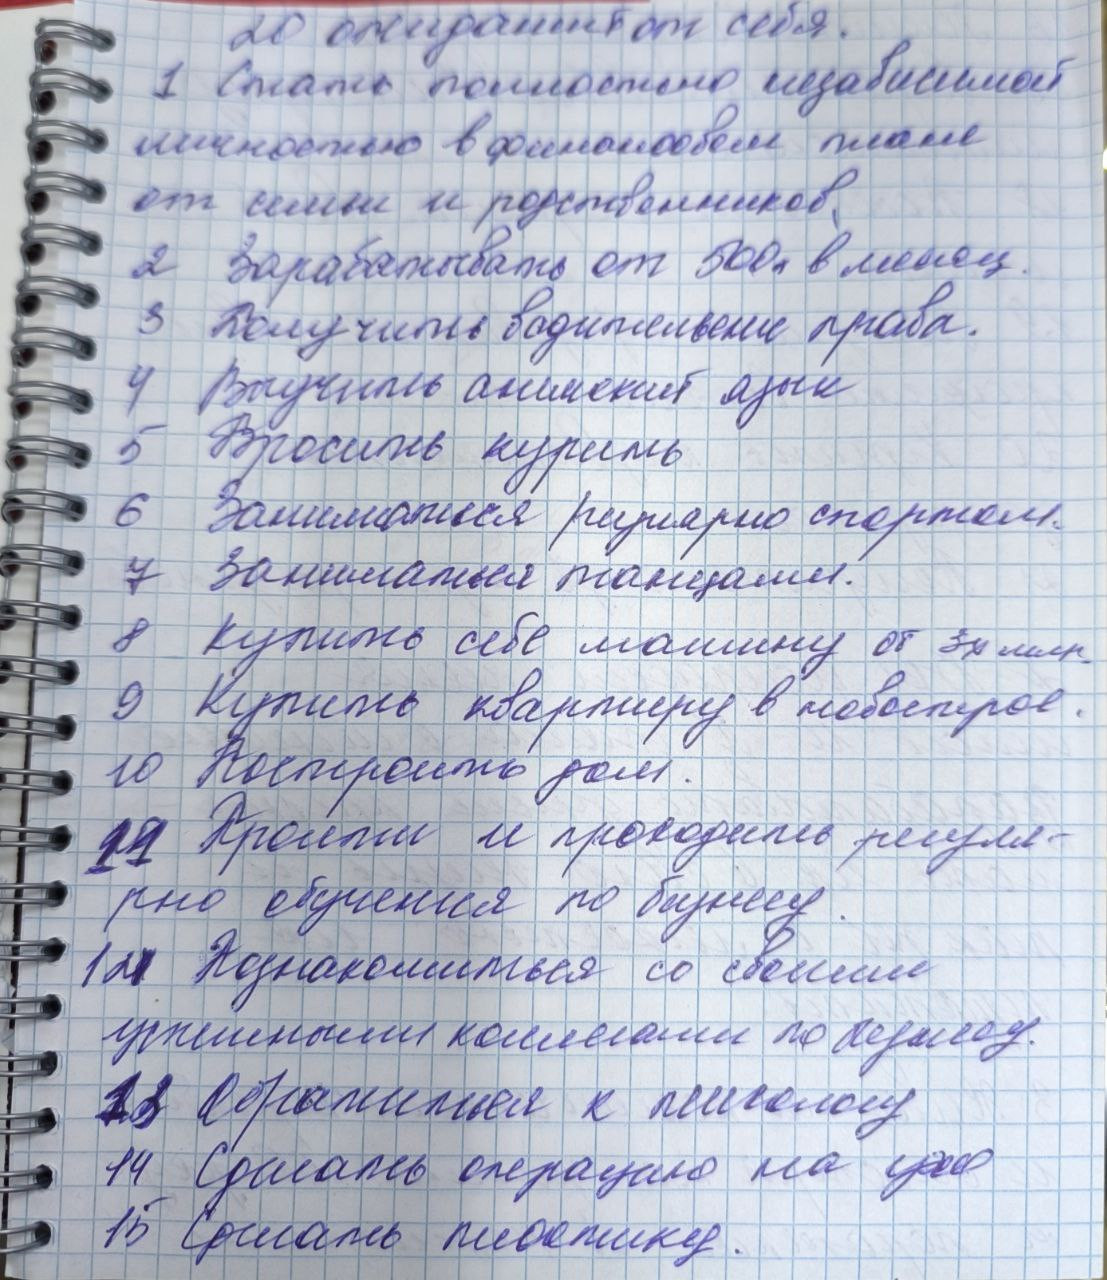 20 ожиданий от себя.
1 Стать полностью независимой
личностью в финансовом плане
от семьи и родственников.
2 Зарабатывать от 500 в месяц.
3 Получить водительские права.
4 Выучить английский язык
5 Бросить курить
6 Заниматься регулярно спортом.
7 Заниматься танцами.
8 Купить себе машину от 3х млн.
9 Купить квартиру в новострое.
10 Построить дом.
11 Пройти и проходить регуля-
рно обучения по бизнесу.
12 Познакомиться со своими
успешными коллегами по бизнесу.
13 Обратиться к психологу
14 Сделать операцию на ухо
15 Сделать пластику.